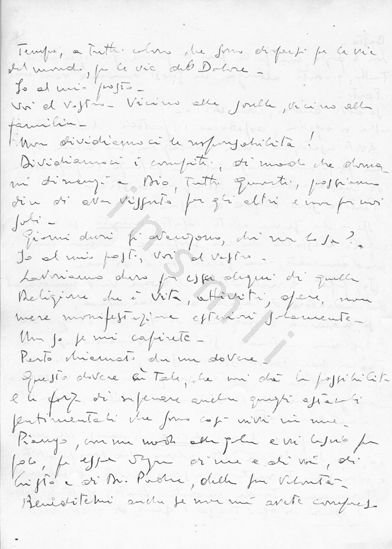 Tempo, a tutti coloro che sono dispersi per le vie
del mondo, per le vie del Dolore -
Io al mio posto -
Voi al vostro - Vicino alle sorelle, vicino alla
famiglia -
Non dividiamoci le responsabilità!
Dividiamoci i compiti, di modo che doma-
ni dinanzi a Dio, tutti quanti, possiamo
dire di aver vissuto per gli altri e non per noi
soli -
Giorni duri si avvicinano, chi non lo sa?
Io al mio posto, voi al vostro -
Lavoriamo duro per essere degni di quella
Religione che è vita, attività, opere, non
mere manifestazione esteriori solamente -
Non so se mi capirete -
Parto chiamato da un dovere -
Questo dovere è tale, che mi dà la possibilità
e la forza di superare anche quegli ostacoli
sentimentali che sono così vivi in me -
Piango, con un nodo alla gola e vi lascio per
poco, per essere degno di me e di voi, di
Cristo e di Dio Padre, della sua Volontà -
Beneditemi anche se non mi avete compreso
insmli